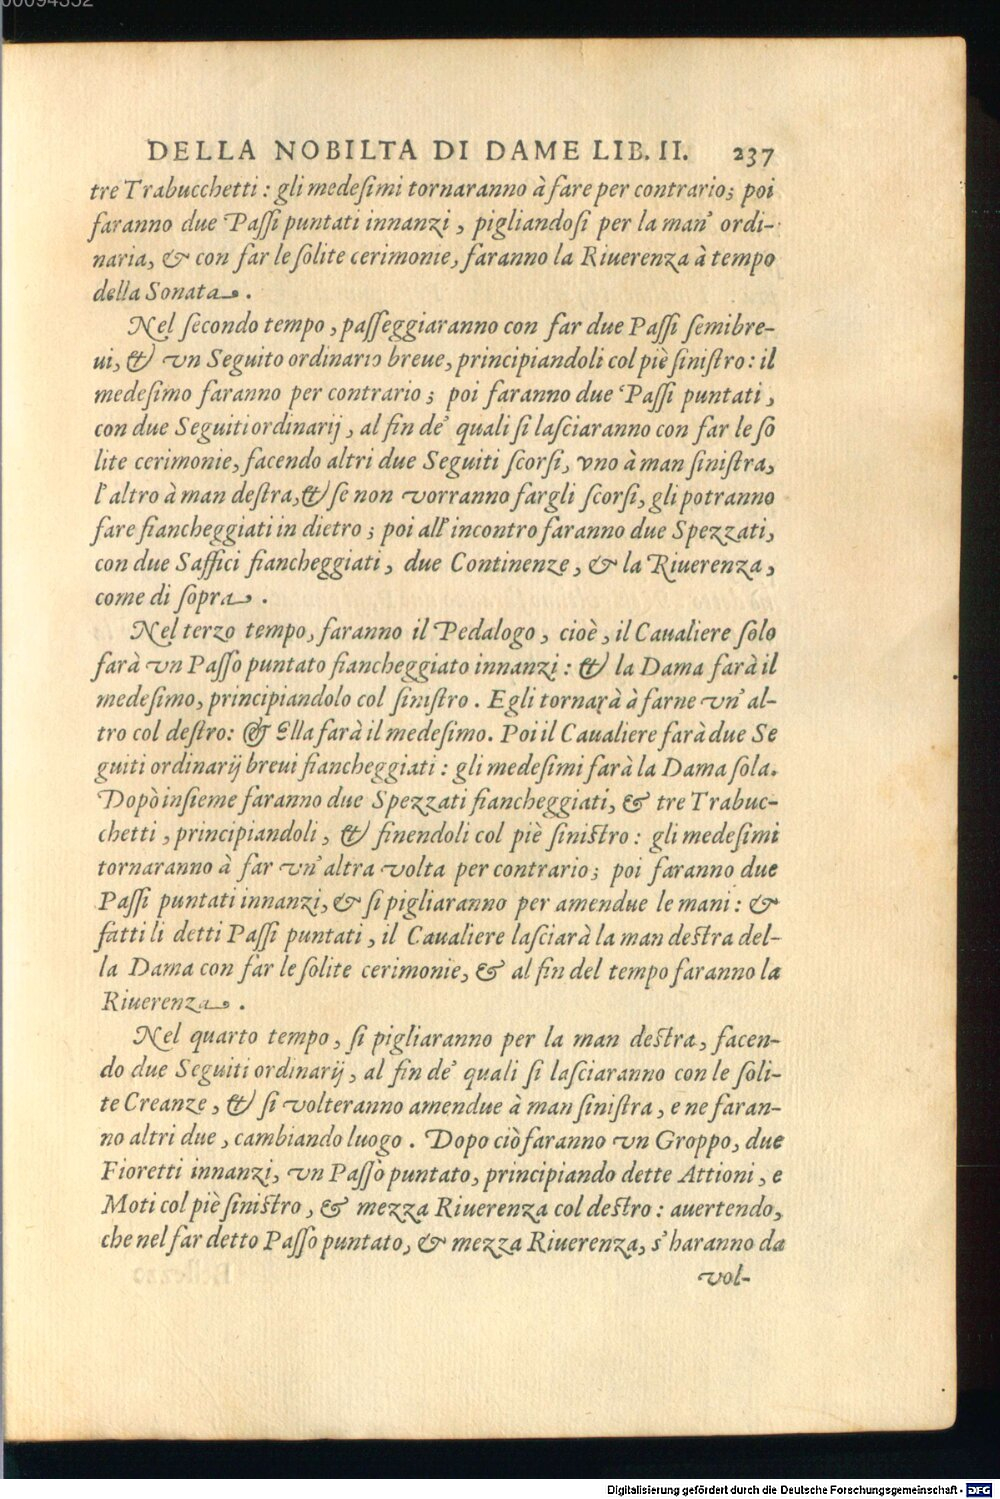 DELLA NOBILTA DI DAME LIB. II. 237
tre Trabucchetti : gli medeſimi tornaranno à fare per contrario; poi
faranno due Paſſi puntati innanzi , pigliandoſi per la man' ordi-
naria, & con far le ſolite cerimonie, faranno la Riuerenza à tempo
della Sonata .
Nel ſecondo tempo , paſſeggiaranno con far due Paſſi ſemibre-
ui, & vn Seguito ordinario breue, principiandoli col piè ſiniſtro : il
medeſimo faranno per contrario ; poi faranno due Paſſi puntati ,
con due Seguiti ordinarij , al fin de' quali ſi laſciaranno con far le ſo
lite cerimonie, facendo altri due Seguiti ſcorſi, vno à man ſiniſtra,
l'altro à man deſtra, & ſe non vorranno fargli ſcorſi, gli potranno
fare fiancheggiati in dietro ; poi all'incontro faranno due Spezzati,
con due Saffici fiancheggiati , due Continenze , & la Riuerenza ,
come di ſopra .
Nel terzo tempo, faranno il Pedalogo , cioè , il Caualiere ſolo
farà vn Paſſo puntato fiancheggiato innanzi : & la Dama farà il
medeſimo, principiandolo col ſiniſtro . Egli tornarà à farne vn' al-
tro col deſtro: & Ella farà il medeſimo. Poi il Caualiere farà due Se
guiti ordinarij breui fiancheggiati : gli medeſimi farà la Dama ſola.
Dopò inſieme faranno due Spezzati fiancheggiati, & tre Trabuc-
chetti , principiandoli , & finendoli col piè ſiniſtro : gli medeſimi
tornaranno à far vn' altra volta per contrario ; poi faranno due
Paſſi puntati innanzi, & ſi pigliaranno per amendue le mani : &
fatti li detti Paſſi puntati , il Caualiere laſciarà la man deſtra del-
la Dama con far le ſolite cerimonie, & al fin del tempo faranno la
Riuerenza .
Nel quarto tempo , ſi pigliaranno per la man deſtra, facen-
do due Seguiti ordinarij , al fin de' quali ſi laſciaranno con le ſoli-
te Creanze , & ſi volteranno amendue à man ſiniſtra , e ne faran-
no altri due , cambiando luogo . Dopo ciò faranno vn Groppo, due
Fioretti innanzi, vn Paſſo puntato, principiando dette Attioni , e
Moti col piè ſiniſtro , & mezza Riuerenza col deſtro : auertendo,
che nel far detto Paſſo puntato, & mezza Riuerenza, s'haranno da
vol-
Digitalisierung gefördert durch die Deutsche Forschungsgemeinschaft - DFG